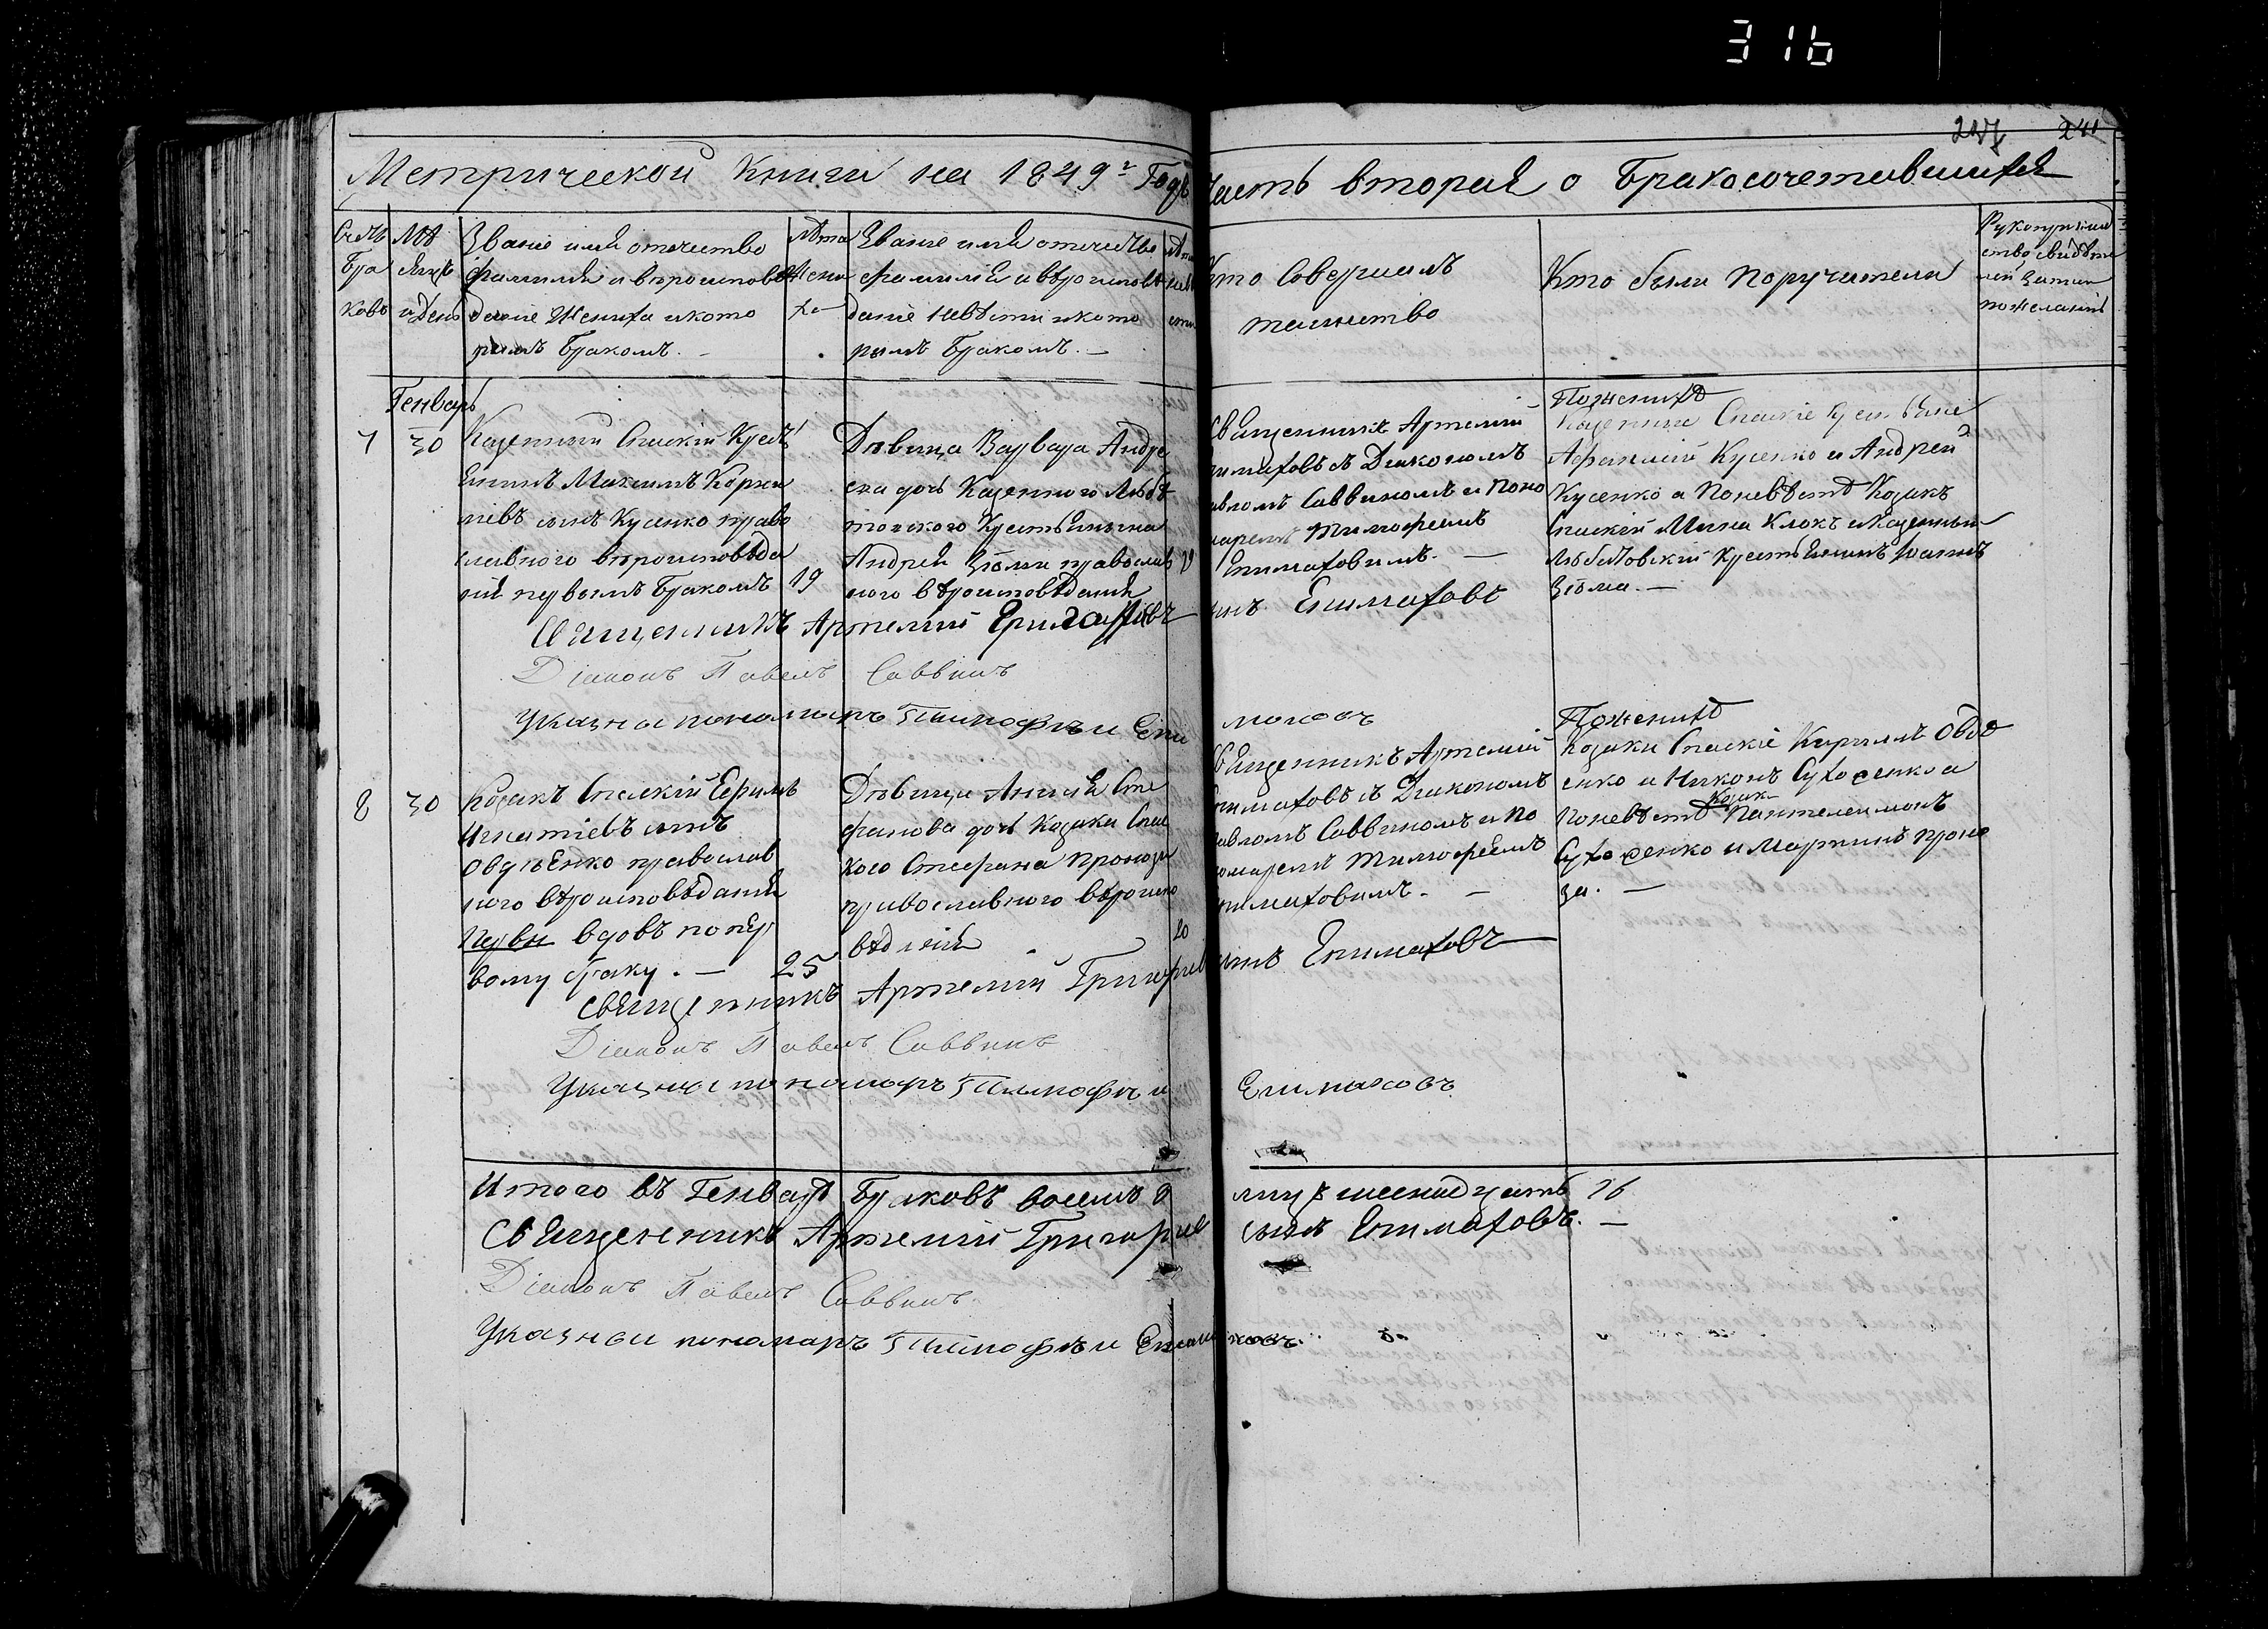 316
241
Метрической Книги на 1849г Годъ Часть вторая о Бракосочетавшихся
Счетъ
бра
ковъ
Мѣ
сяцъ
и день
Званіе имя отечество
фамилія и вѣроисповѣ
даніе Жениха и кото
рымъ бракомъ. –
Лѣта
Жени
ха
Званіе имя отечество
фамилія и вѣроисповѣ
даніе невѣсти и кото
рымъ бракомъ. –
Кто Совершалъ
таинство
Кто были Поручители
Рукоприклад
ство свидѣте
лей записи
по желанію
Генварь
7
30
Казенный Спаскій Крест
янинъ Максимъ Корни
ліевъ сынъ Кусенко право
славного вѣроисповѣда
нія первымъ бракомъ
19
Дѣвица Варвара Андре
ева дочь Казенного Любѣ
товского Крестьянина
Андрея Зюми православ
ного вѣроисповѣданія
Священникъ Артемій
Епимаховъ съ Діякономъ
Павломъ Саввиномъ и Поно
маремъ Тимофеемъ
Епимаховимъ. –
По женихѣ
Казенніи Спаскіе крестьяне
Афанасій Кусенко и Андрей
Кусенко а По невѣстѣ Козакъ
Спаскій Мина Клокъ и Казенный
Любитовскій Крестьянинъ Іоаннъ
Зюма. –
Священникъ Артемій Григорьевъ
сынъ Епимаховъ
Діаконъ Павелъ Саввинъ
Указнои пономарь Тимофѣи Епи
маховъ
8
30
Козакъ Спаскій Ефимъ
Игнатіевъ сынъ
Овдѣенко православ
ного вѣроисповѣданія
Первы вдовъ по пер
вому браку. –
25
Дѣвица Анисія Сте
фанова дочь Козака Спас
кого Стефана Пронози
православного вѣроиспо
вѣданія
20
Священникъ Артемій
Епимаховъ съ Діякономъ
Павломъ Саввиномъ и По
номаремъ Тимофеемъ
Епимаховимъ. –
По женихѣ
Козаки Спаскіе Кириллъ Овдѣ
енко и Никонъ Суховенко а
По невѣстѣ Козаки Пантелеимонъ
Суховенко и Мартинъ Проно
за. –
Священникъ Артемій Григорьевъ
сынъ Епимаховъ
Діаконъ Павелъ Саввинъ
Указнои пономарь Тимофѣи Епимаховъ
Итого въ Генварѣ Браковъ восемь 8 лицъ шеснадцать 16
Священникъ Артемій Григорьевъ сынъ Епимаховъ. –
Діаконъ Павелъ Саввинъ
Указнои пономарь Тимофѣи Епимаховъ.